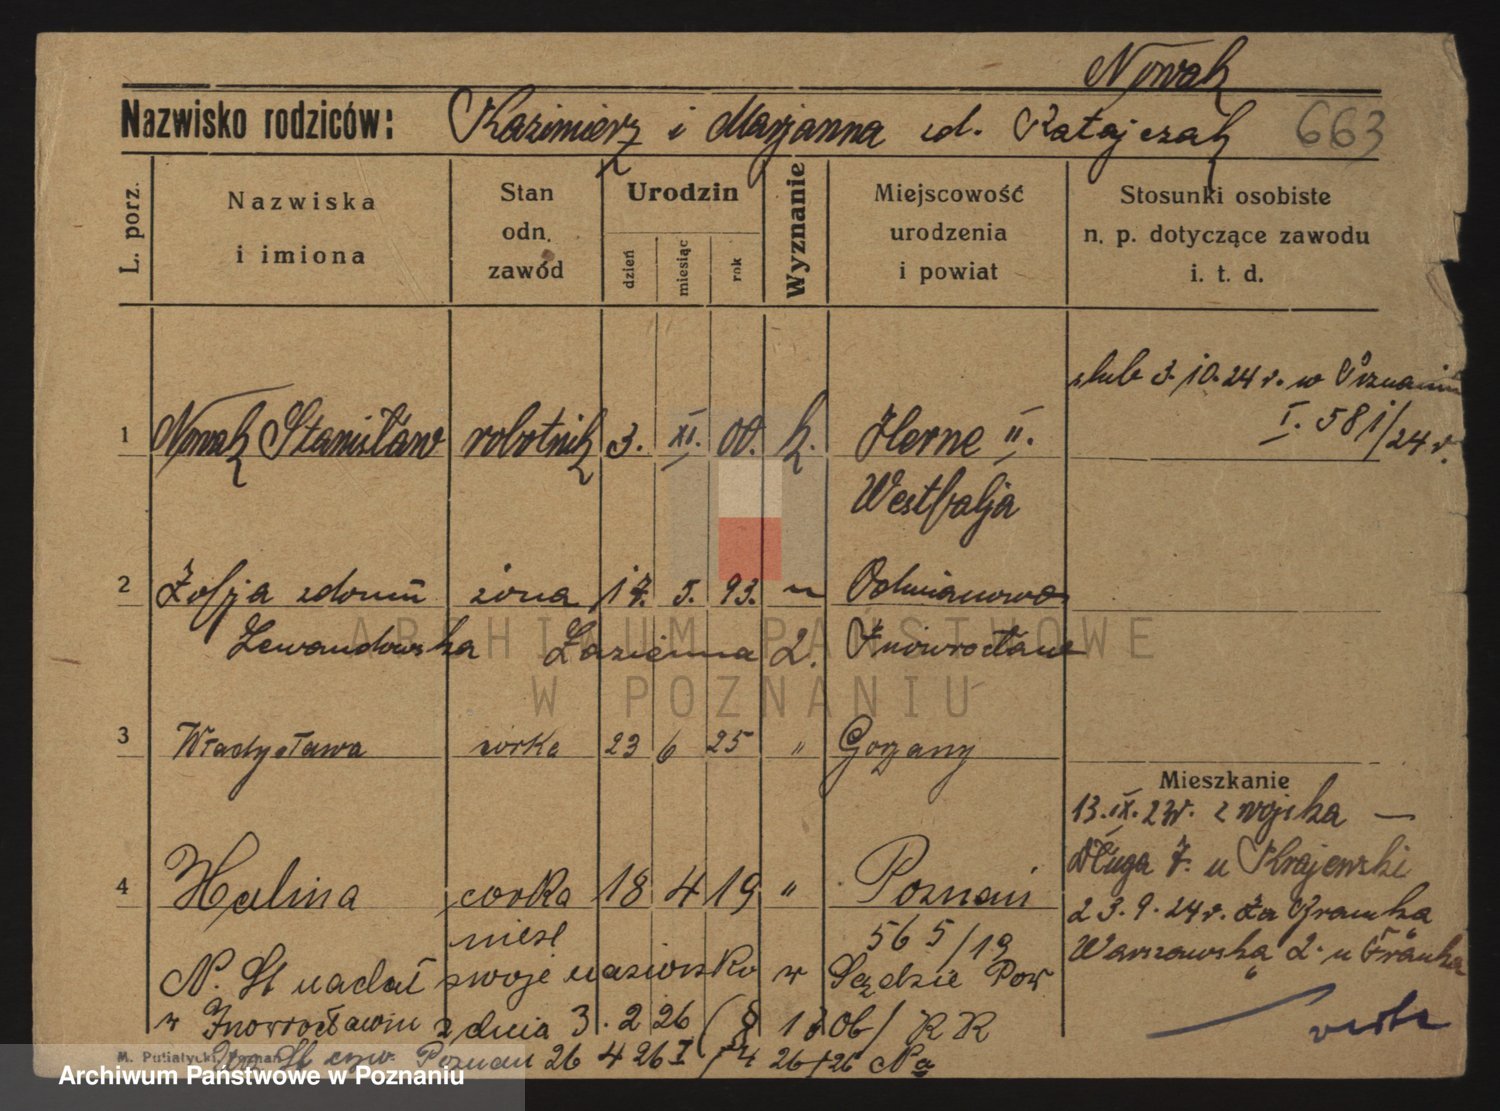 Nowak
Nazwisko rodziców: Kazimierz i Marjanna zd. Ratajczak 663
L. porz.
Nazwiska i imiona
Stan odn. zawód
Urodzin
dzień
miesiąc
rok
Wyznanie
Miejscowość urodzenia i powiat
Stosunki osobiste n. p. dotyczące zawodu i. t. d.
ślub 3. 10. 24 r. w Poznaniu
I. 581/24 r.
1 Nowak Stanisław robotnik 3. XI. 00. k. Herne II.
Westfalja
2 Zofja zdomu żona 17. 5. 93. " Odmianowo
Lewandowska Łazienna 2. Inowrocław
ARCHIWUM PAŃSTWOWE
W POZNANIU
3 Władysława córka 23 6 25 " Gorzany
Mieszkanie
13. IX. 24r. z wojska —
Długa 7. u Krajewski
4 Halina corka 18 4 19 " Poznań
23. 9. 24 r. Za Bramką
nieśl 565/19
Warszawska 2. u Franka
N. St nadał swoje nazwisko w Sądzie Pow
w Inowrocławiu z dnia 3. 2 26 (§ 1706) RR
M. Putiatycki, Poznań
St czw. Poznań 26 4 26 I
Archiwum Państwowe w Poznaniu